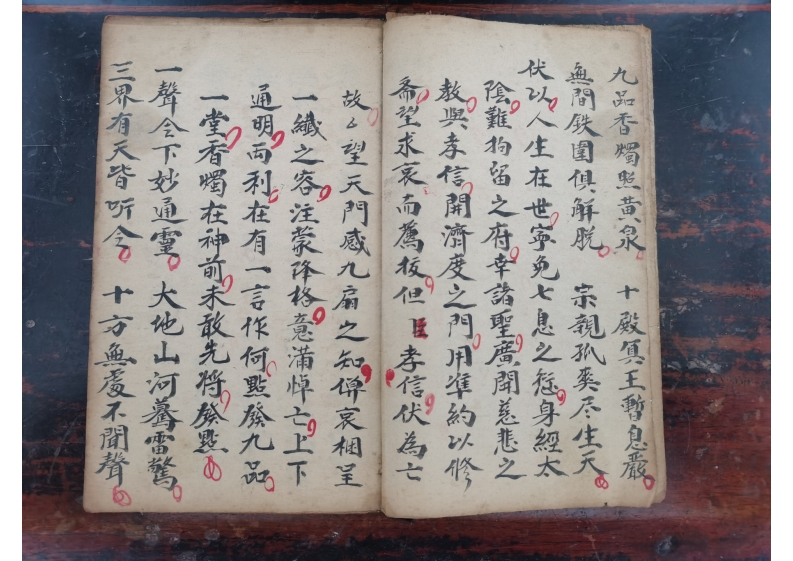 九品香燭照黄泉 十殿冥王暫息嚴
無間鉄圍俱解脱 宗親孤爽尽生天
伏以人生在世寧免七息之愆身經太
陰難拘留之府幸諸聖廣開慈悲之
教與孝信開濟度之門用準約以修
斋望求哀而薦拔但臣孝信伏為亡
故〻望天門感九扇之知俾哀悃呈
一纖之容注蒙降格意滿悼亡上下
通明両利在有一言作何點發九品
一堂香燭在神前未敢先將發㸃
一聲令下妙通靈 大地山河驀雷驚
三界有天皆听令 十方無處不聞聲